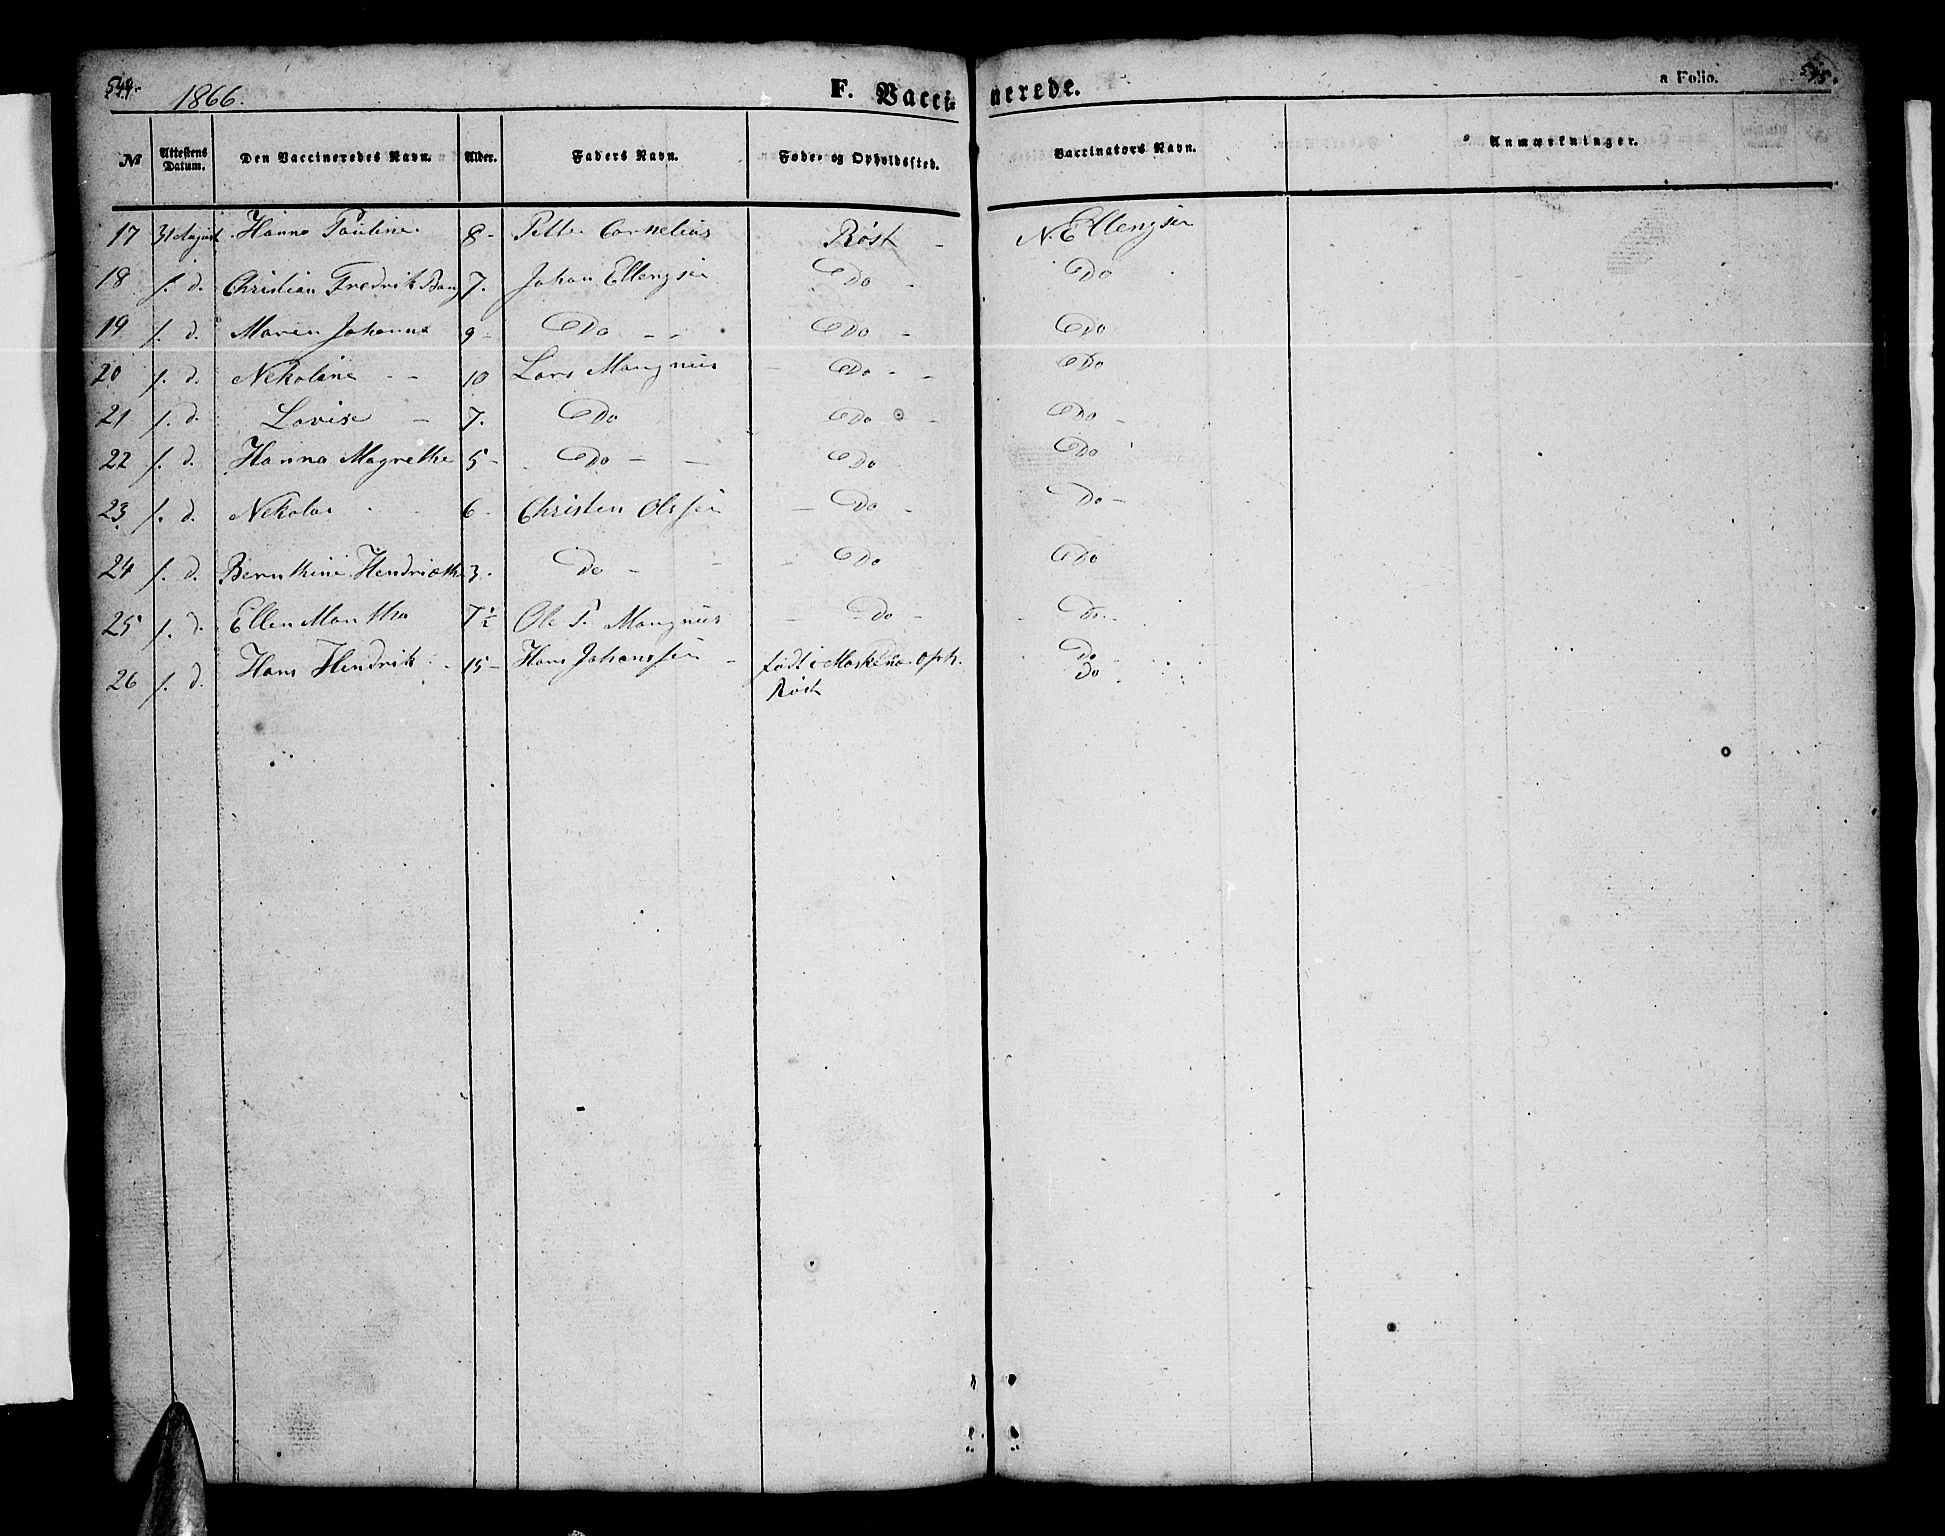 544. 1866. F. Vacci- nerede. a Folio. 545.
No Attestens Datum. Den Vaccineredes Navn. Alder. Faders Navn. Føde- og Opholdssted. Vaccinators Navn. Anmærkninger.
17 31 August Hanna Pauline 8 - Petter Cornelius Røst - N. Ellengsen
18 s. d. Christian Fredrik Bang 7. Johan Ellengsen Do - Do
19 s. d. Maren Johanna 9 - Do - - Do - Do
20 s. d. Nekoline - - 10 Lars Mangnus Do - - Do
21 s. d. Lovise - 7. Do Do - Do -
22 s. d. Hanna Magrethe 5 - Do - - Do Do
23 s. d. Nekolai 6 - Christen Olssen - Do - Do -
24 s. d. Bernthine Hendriethe 3. Do - - - Do Do
25 s. d. Ellen Martha 7½ Ole P. Mangnus - Do - - Do.
26 s. d. Hans Hendrik - 15 - Hans Johanssen - født i Moskenæ Oph. Do
Røst Do